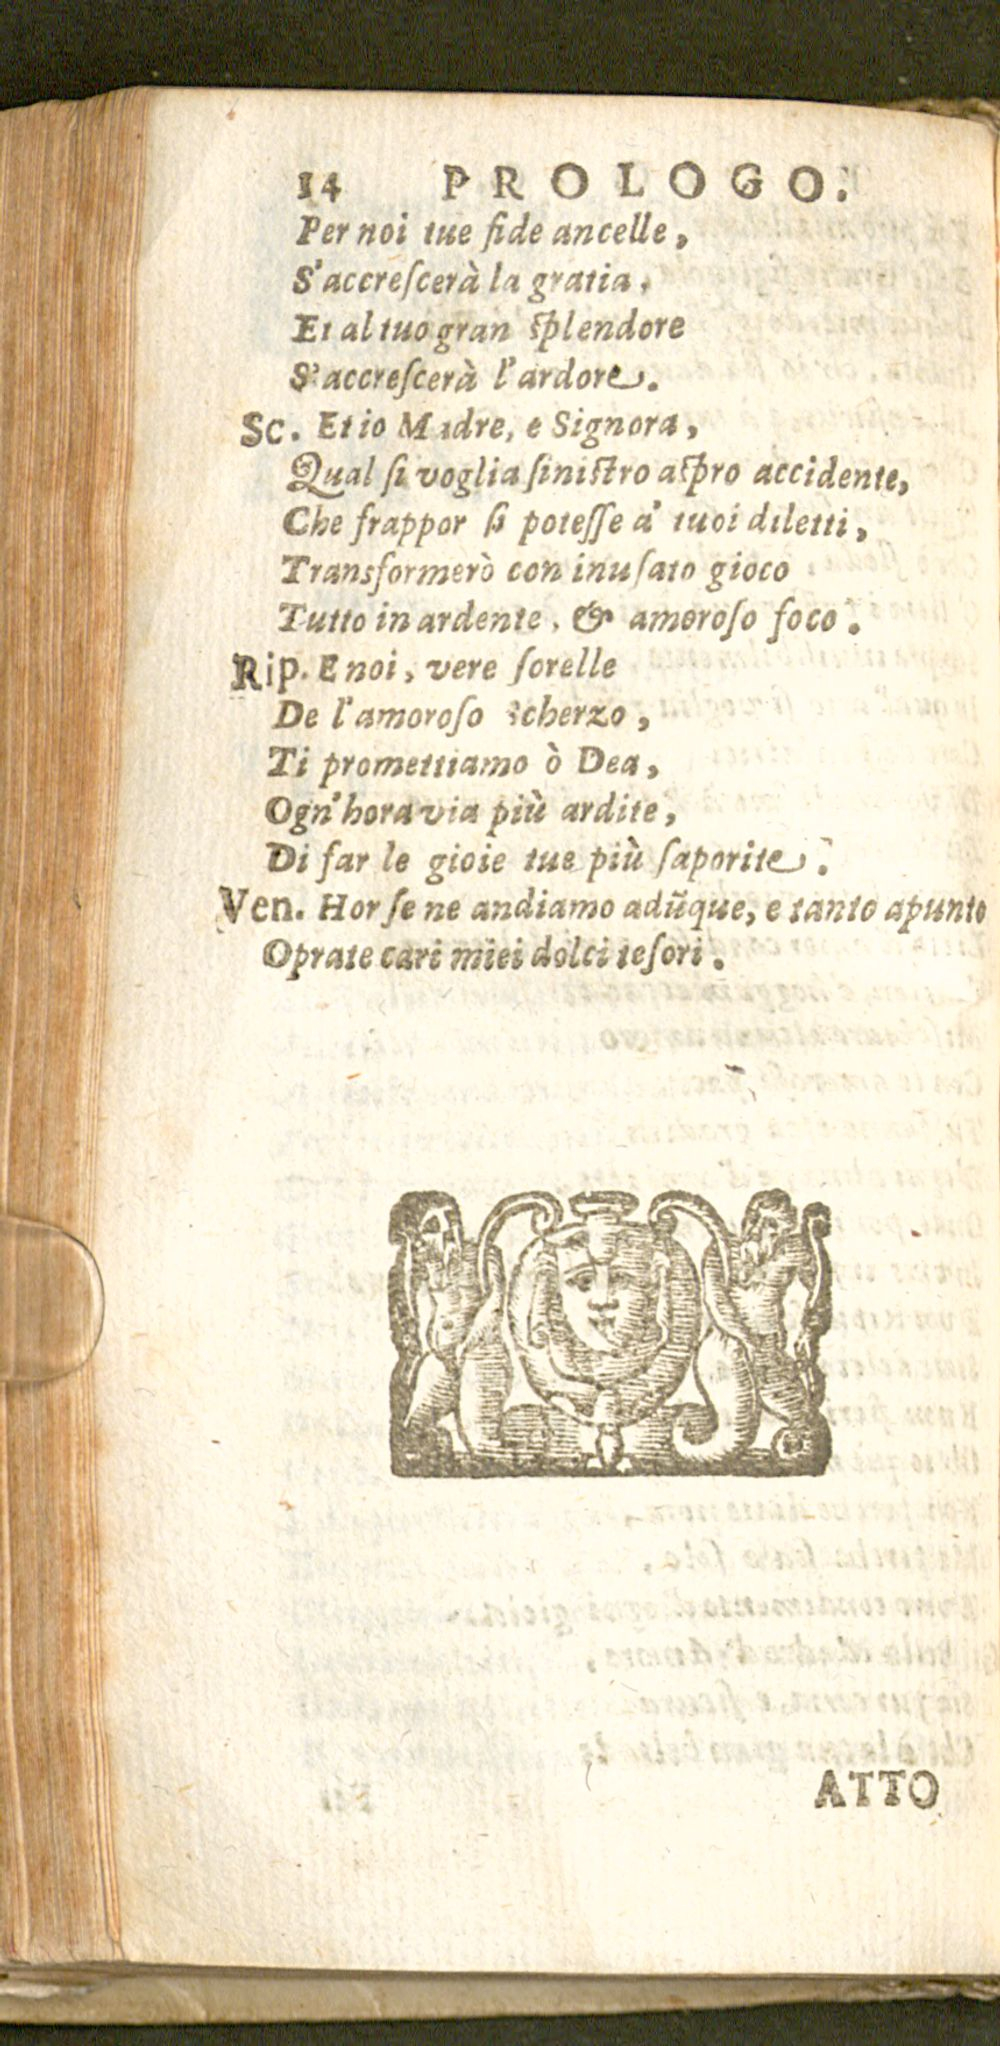 14 PROLOGO.
Per noi tue fide ancelle,
S'accreſcerà la gratia.
Et al tuo gran ſplendore
S'accreſcerà l'ardore.
Sc. Et io Madre, e Signora,
Qual ſi voglia ſiniſtro aſpro accidente,
Che frappor ſi poteſſe a' tuoi diletti,
Transformerò con inuſato gioco
Tutto in ardente, & amoroſo foco.
Rip. E noi, vere ſorelle
De l'amoroſo ſcherzo,
Ti promettiamo ò Dea,
Ogn'hora via più ardite,
Di far le gioie tue più ſaporite.
Ven. Hor ſe ne andiamo adũque, e tanto apunto
Oprate cari miei dolci teſori.
ATTO